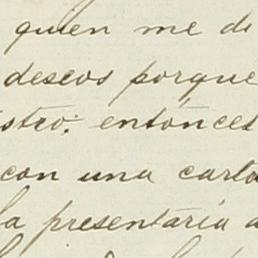 quien me di
deseos porque
istro: entónces
con una carta
la presentaría a